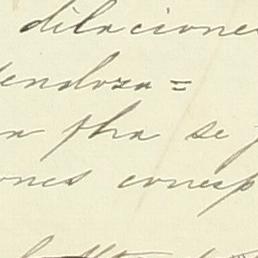 dilacione
endoza=
a fha se
ones corresp